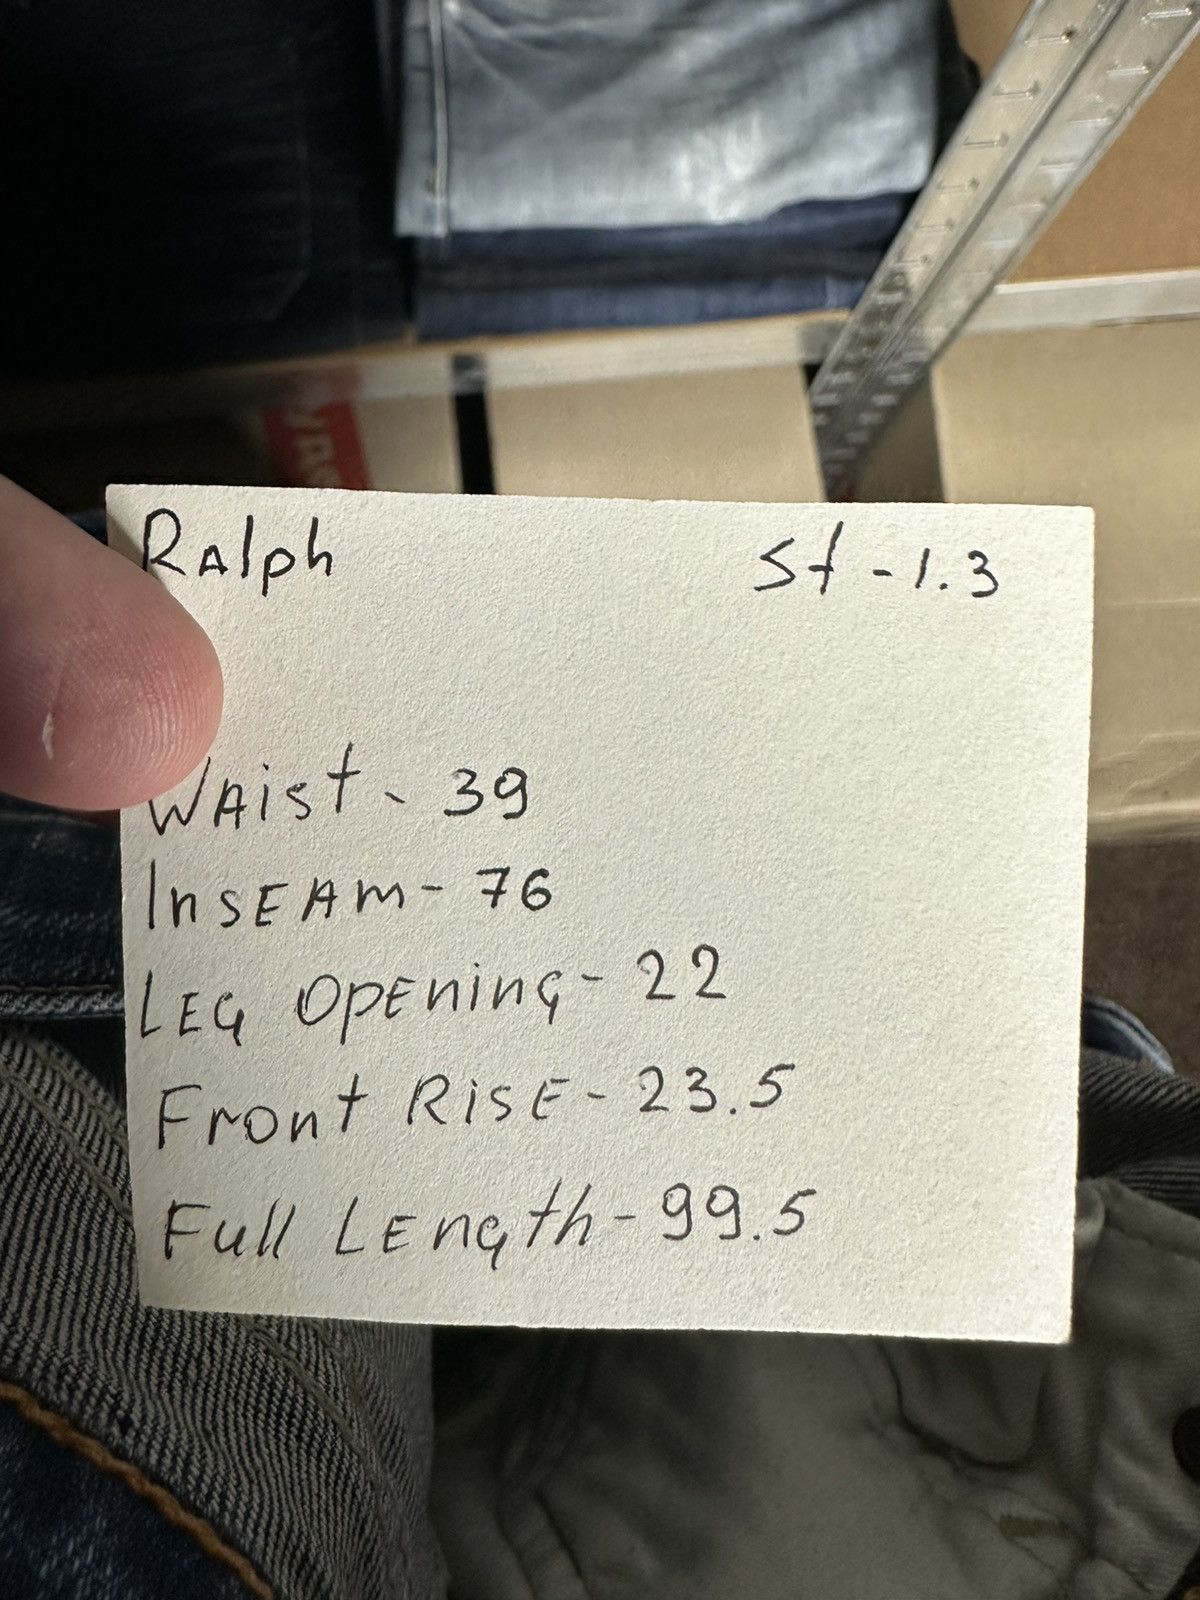 Ralph St - 1.3
Waist - 39
Inseam - 76
Leg Opening - 22
Front Rise - 23.5
Full Length - 99.5